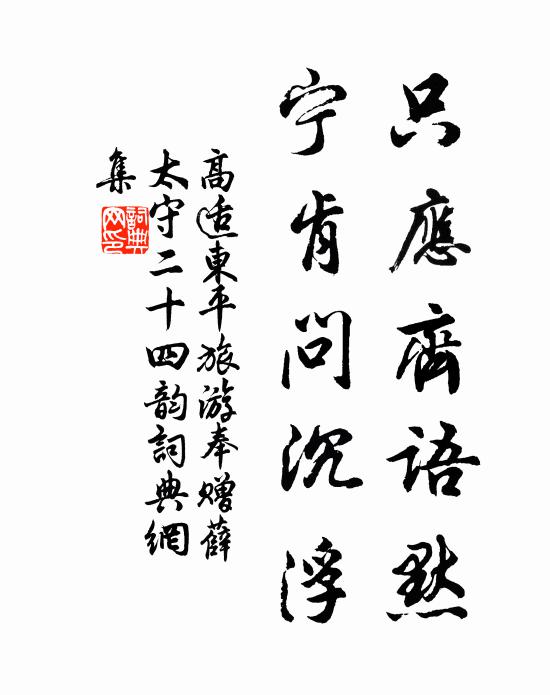 只應齊語默
宁肯問沉浮
高适東平旅游奉贈薛
太守二十四韵詞典網
集
詞典
网印